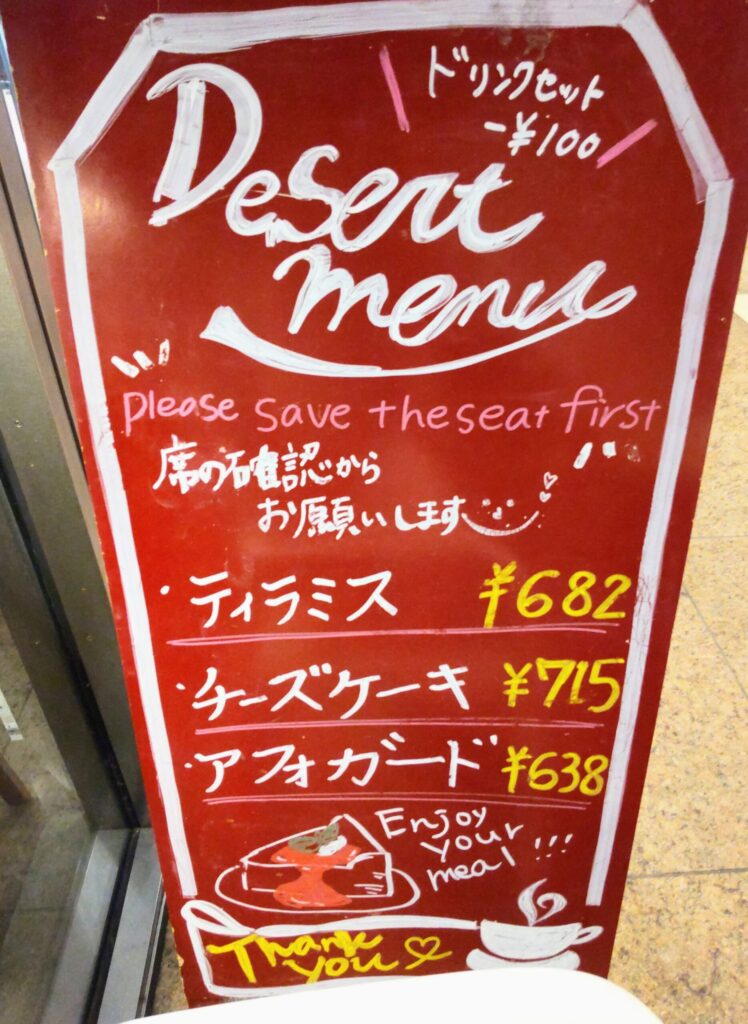 ドリンクセット
-¥100
Desert
menu
please save the seat first
席の確認から
お願いします
・ティラミス ¥682
・チーズケーキ ¥715
・アフォガード ¥638
Enjoy
your
meal!!!
Thank
you♡